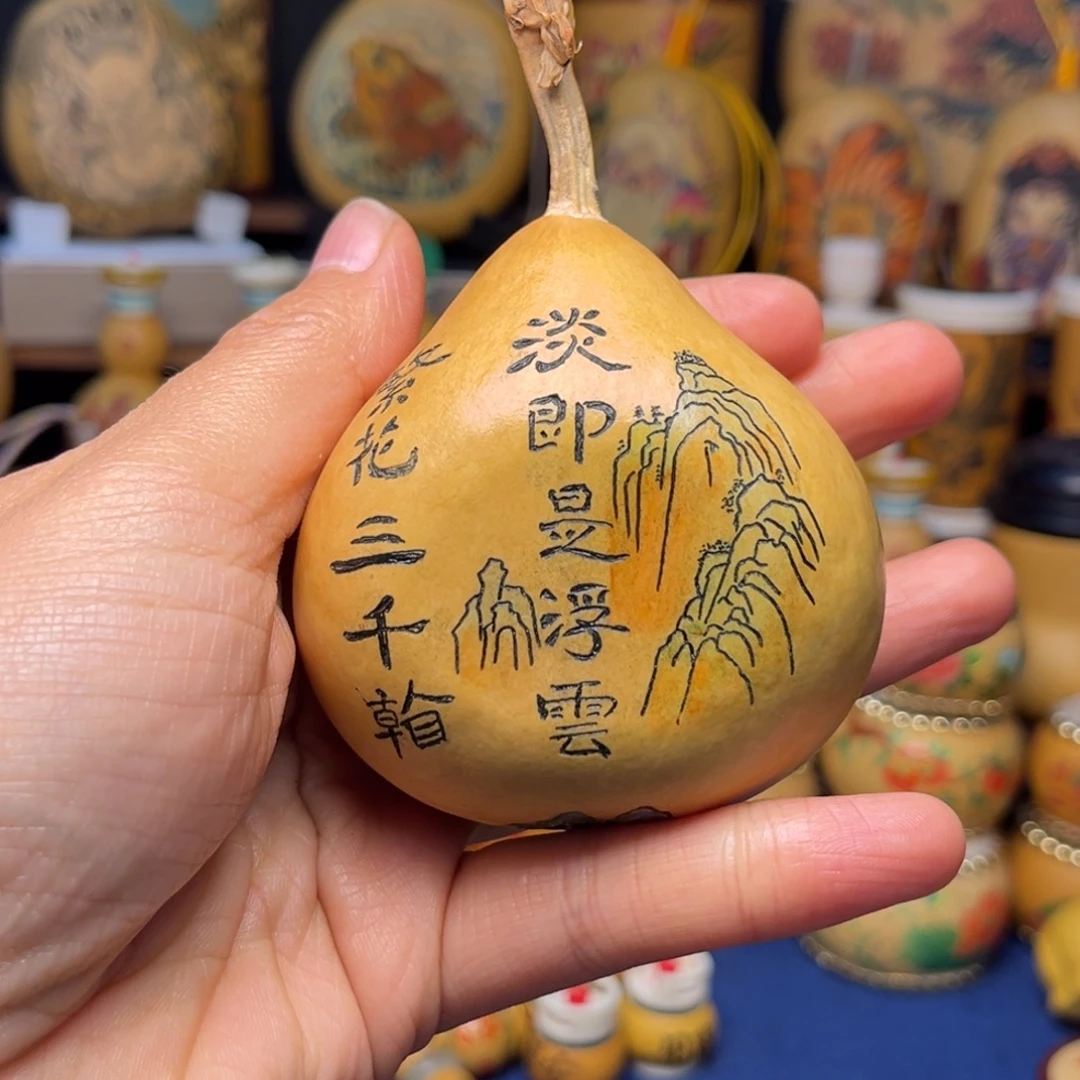 繁花三千看
淡即是浮雲